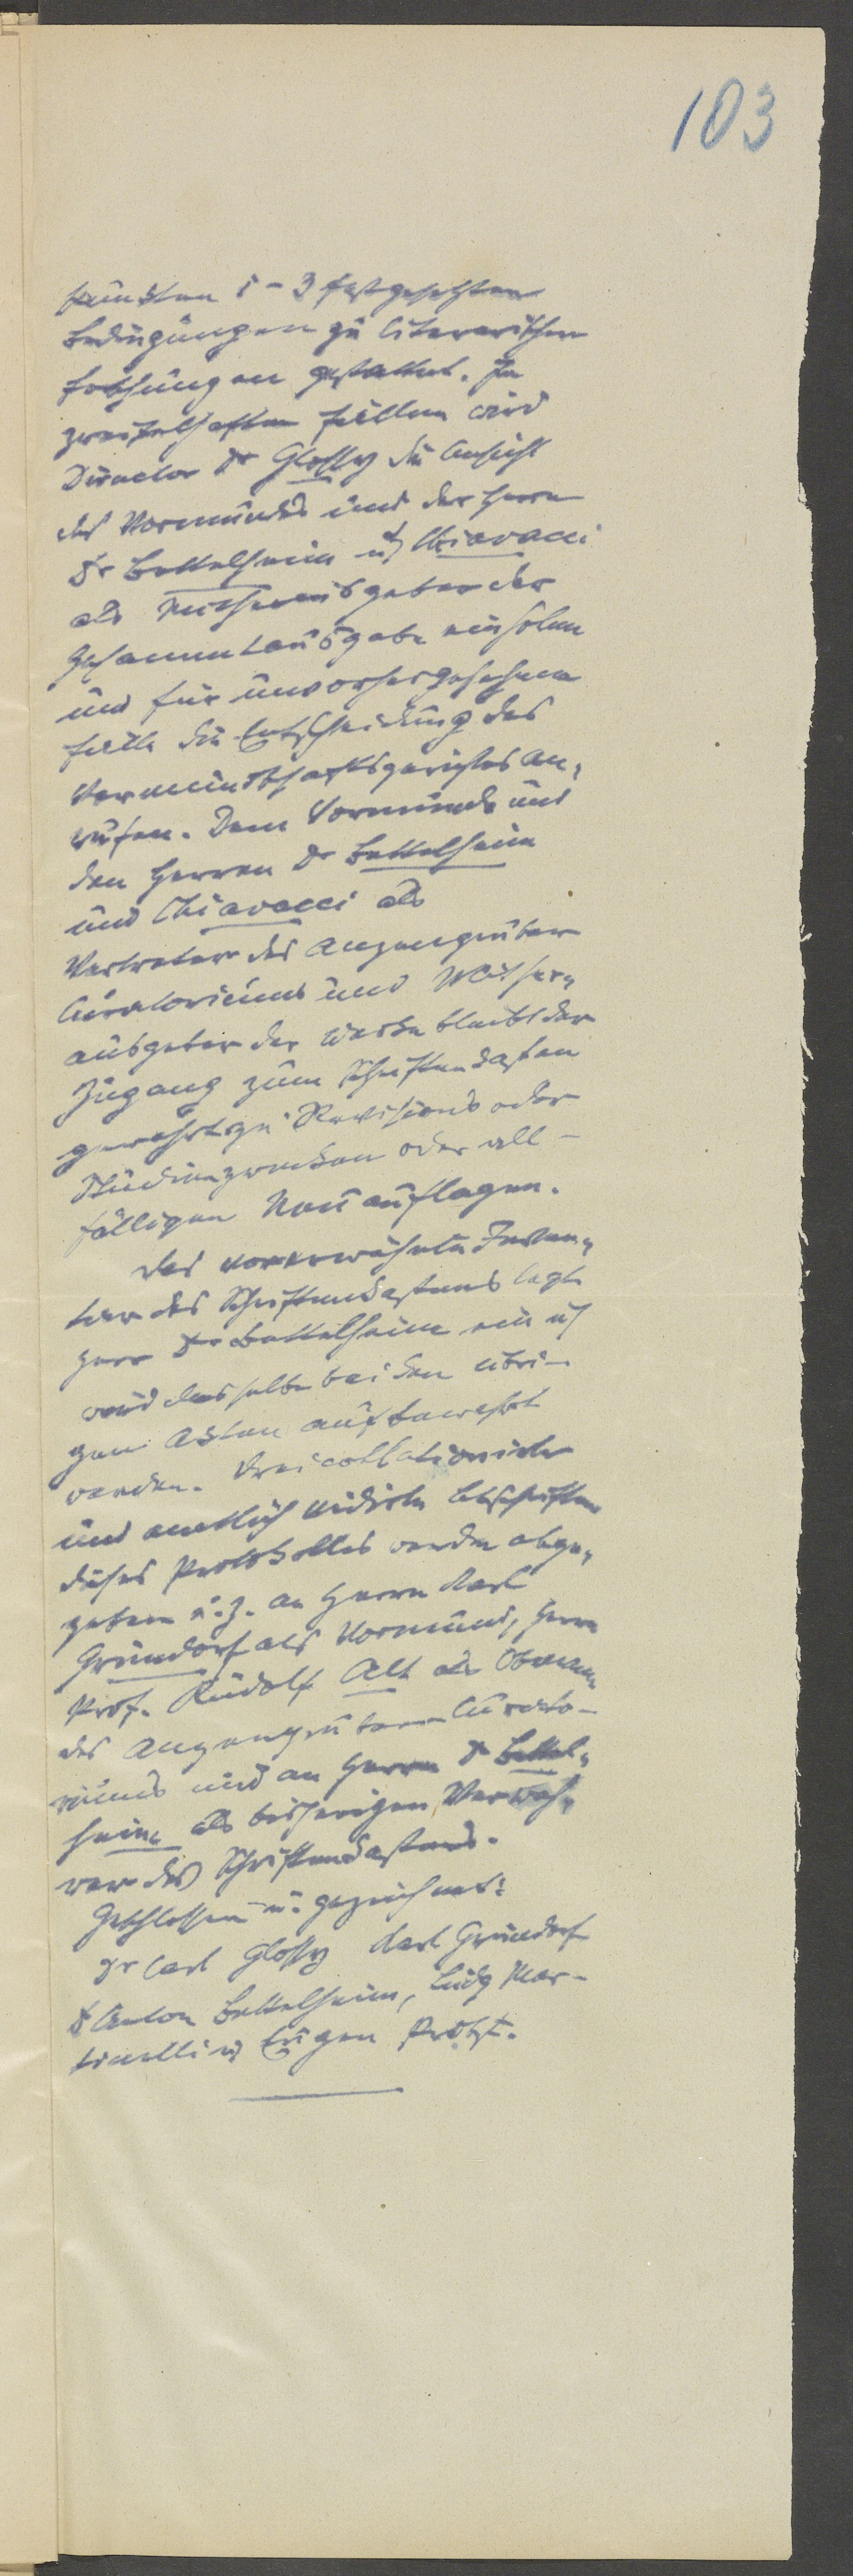 103
Punkten 1-3 festgesetzten
Bedingungen zu literarischen
Forschungen gestattet. In
zweifelhaften Fällen wird
Director Dr Glossy die Ansicht
des Vormundes und der Herren
Dr Bettelheim u. Chiavacci
als Mitherausgeber der
Gesammtausgabe einholen
und für unvorhergesehene
Fälle die Entscheidung des
Vormundschaftsgerichtes an-
rufen. Dem Vormunde und
den Herren Dr Bettelheim
und Chiavacci als
Vertreter des Anzengruber
Curatoriums und Mither-
ausgeber der Werke bleibt der
Zugang zum Schriftenkasten
gewahrt zu Revisions oder
Studienzwecken oder all-
fälligen Neuauflagen.
Das vorerwähnte Inven-
tar des Schriftenkastens legt
Herr Dr Bettelheim ein u.
wird dasselbe bei den übri-
gen Akten aufbewahrt
werden. Drei collationirte
und amtlich vidirte Abschriften
dieses Protokolles werden abge-
geben u. z. an Herrn Karl
Gründorf als Vormund, Herrn
Prof. Rudolf Alt als Obmann
des Anzengruber Curato-
riums und an Herrn Dr Bettel-
heim als bisherigen Verwah-
rer des Schriftenkastens.
Geschlossen u. gezeichnet:
Dr Carl Glossy Karl Gründorf
Dr Anton Bettelheim, Ludg Mar-
tinelli Eugen Probst.